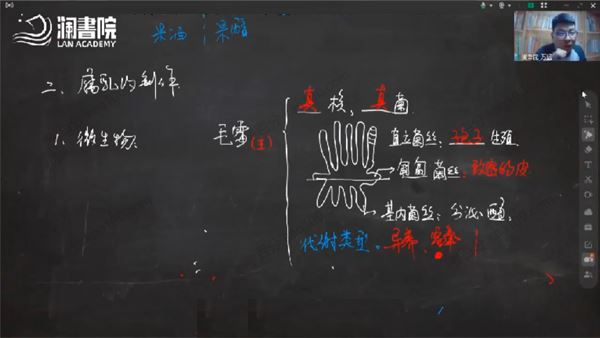 澜書院
LAN ACADEMY
果酒 | 果醋
二、腐乳的制作
1、微生物:
毛霉(主)
真核,真菌
直立菌丝:孢子生殖
匍匐菌丝:致密的皮
基内菌丝:分泌酶,
代谢类型:异养、需氧